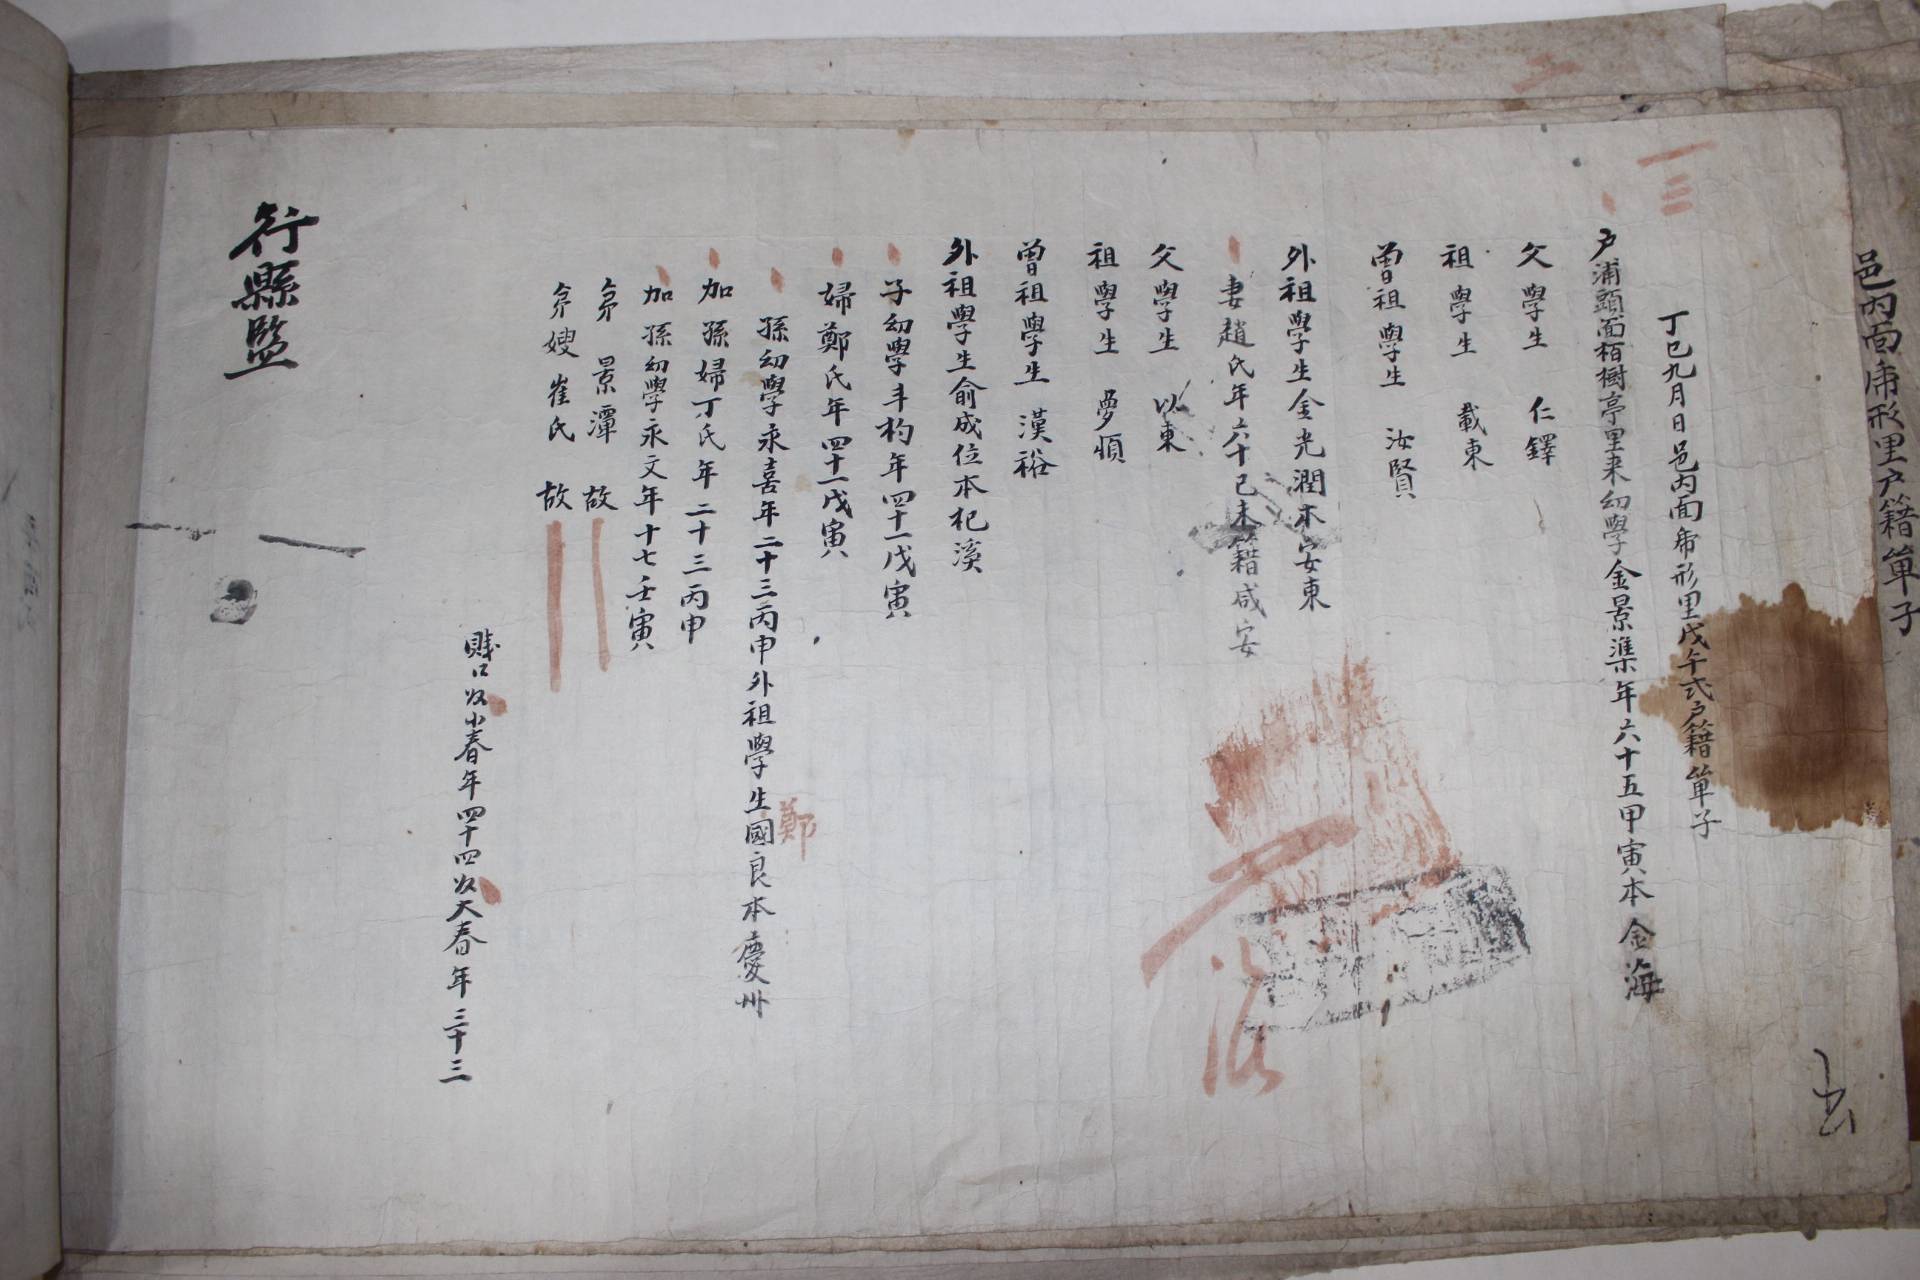 邑內面帿形里戶籍單子
丁巳九月日邑內面帿形里戊午式戶籍單子
戶浦頭面栢樹亭里來幼學金景準年六十五甲寅本金海
父學生 仁鐸
祖學生 載東
曾祖學生 汝賢
外祖學生金光潤本安東
妻趙氏年六十己未籍咸安
父學生 以東
祖學生 夢
曾祖學生 漢裕
外祖學生俞成位本杞溪
子幼學 年四十戊寅
婦鄭氏年四十戊寅
孫幼學永喜年二十三丙申外祖學生國良本慶州
鄭
加孫婦丁氏年二十三丙申
加孫幼學永文年十七壬寅
弟 景潭 故
弟嫂崔氏 故
賤口奴小春年四十四奴大春年三十三
行縣監